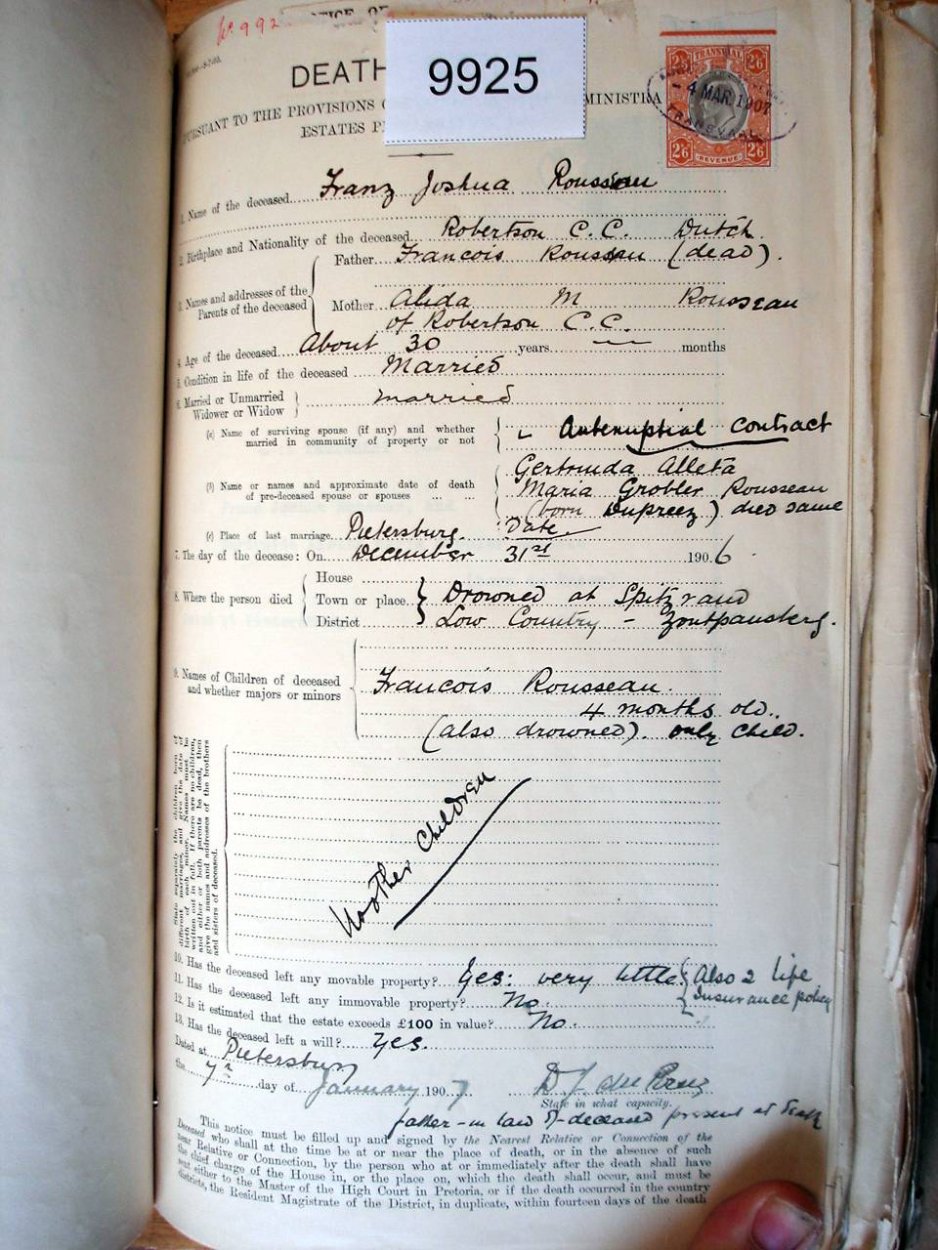 No 992
9925
DEATH
PURSUANT TO THE PROVISIONS MINISTRA
ESTATES
TRANSVAAL
2/6 2/6
- 4 MAR 1907
TRANSVAAL
2/6 REVENUE 2/6
1. Name of the deceased Franz Joshua Rousseau
2. Birthplace and Nationality of the deceased Robertson C.C. Dutch
3. Names and addresses of the Parents of the deceased
Father Francois Rousseau (dead).
Mother Alida M Rousseau
of Robertson C.C.
4. Age of the deceased About 30 years — months
5. Condition in life of the deceased Married
6. Married or Unmarried Widower or Widow married
(a) Name of surviving spouse (if any) and whether married in community of property or not
Antenuptial contract
(b) Name or names and approximate date of death of pre-deceased spouse or spouses
Gertruida Alleta
Maria Grobler Rousseau
(born Dupreez) died same
Date
(c) Place of last marriage Pietersburg.
7. The day of the decease: On December 31st 1906.
8. Where the person died
House
Town or place Drowned at Spitzrand
District Low Country - Zoutpansberg.
9. Names of Children of deceased and whether majors or minors
Francois Rousseau.
4 months old.
(also drowned). only child.
State separately the children born of different marriages, and give the date of birth of each minor. Names must be written out in full. If there are no children, and either or both parents be dead, then give the names and addresses of the brothers and sisters of deceased.
No other Children
10. Has the deceased left any movable property? Yes: very little Also 2 life
Insurance policy
11. Has the deceased left any immovable property? No.
12. Is it estimated that the estate exceeds £100 in value? No.
13. Has the deceased left a will? Yes.
Dated at Pietersburg
the 7th day of January 1907
State in what capacity.
father-in law of deceased present at death
This notice must be filled up and signed by the Nearest Relative or Connection of the
Deceased who shall at the time be at or near the place of death, or in the absence of such
near Relative or Connection, by the person who at or immediately after the death shall have
the chief charge of the House in, or the place on, which the death shall occur, and must be
sent either to the Master of the High Court in Pretoria, or if the death occurred in the country
districts, the Resident Magistrate of the District, in duplicate, within fourteen days of the death